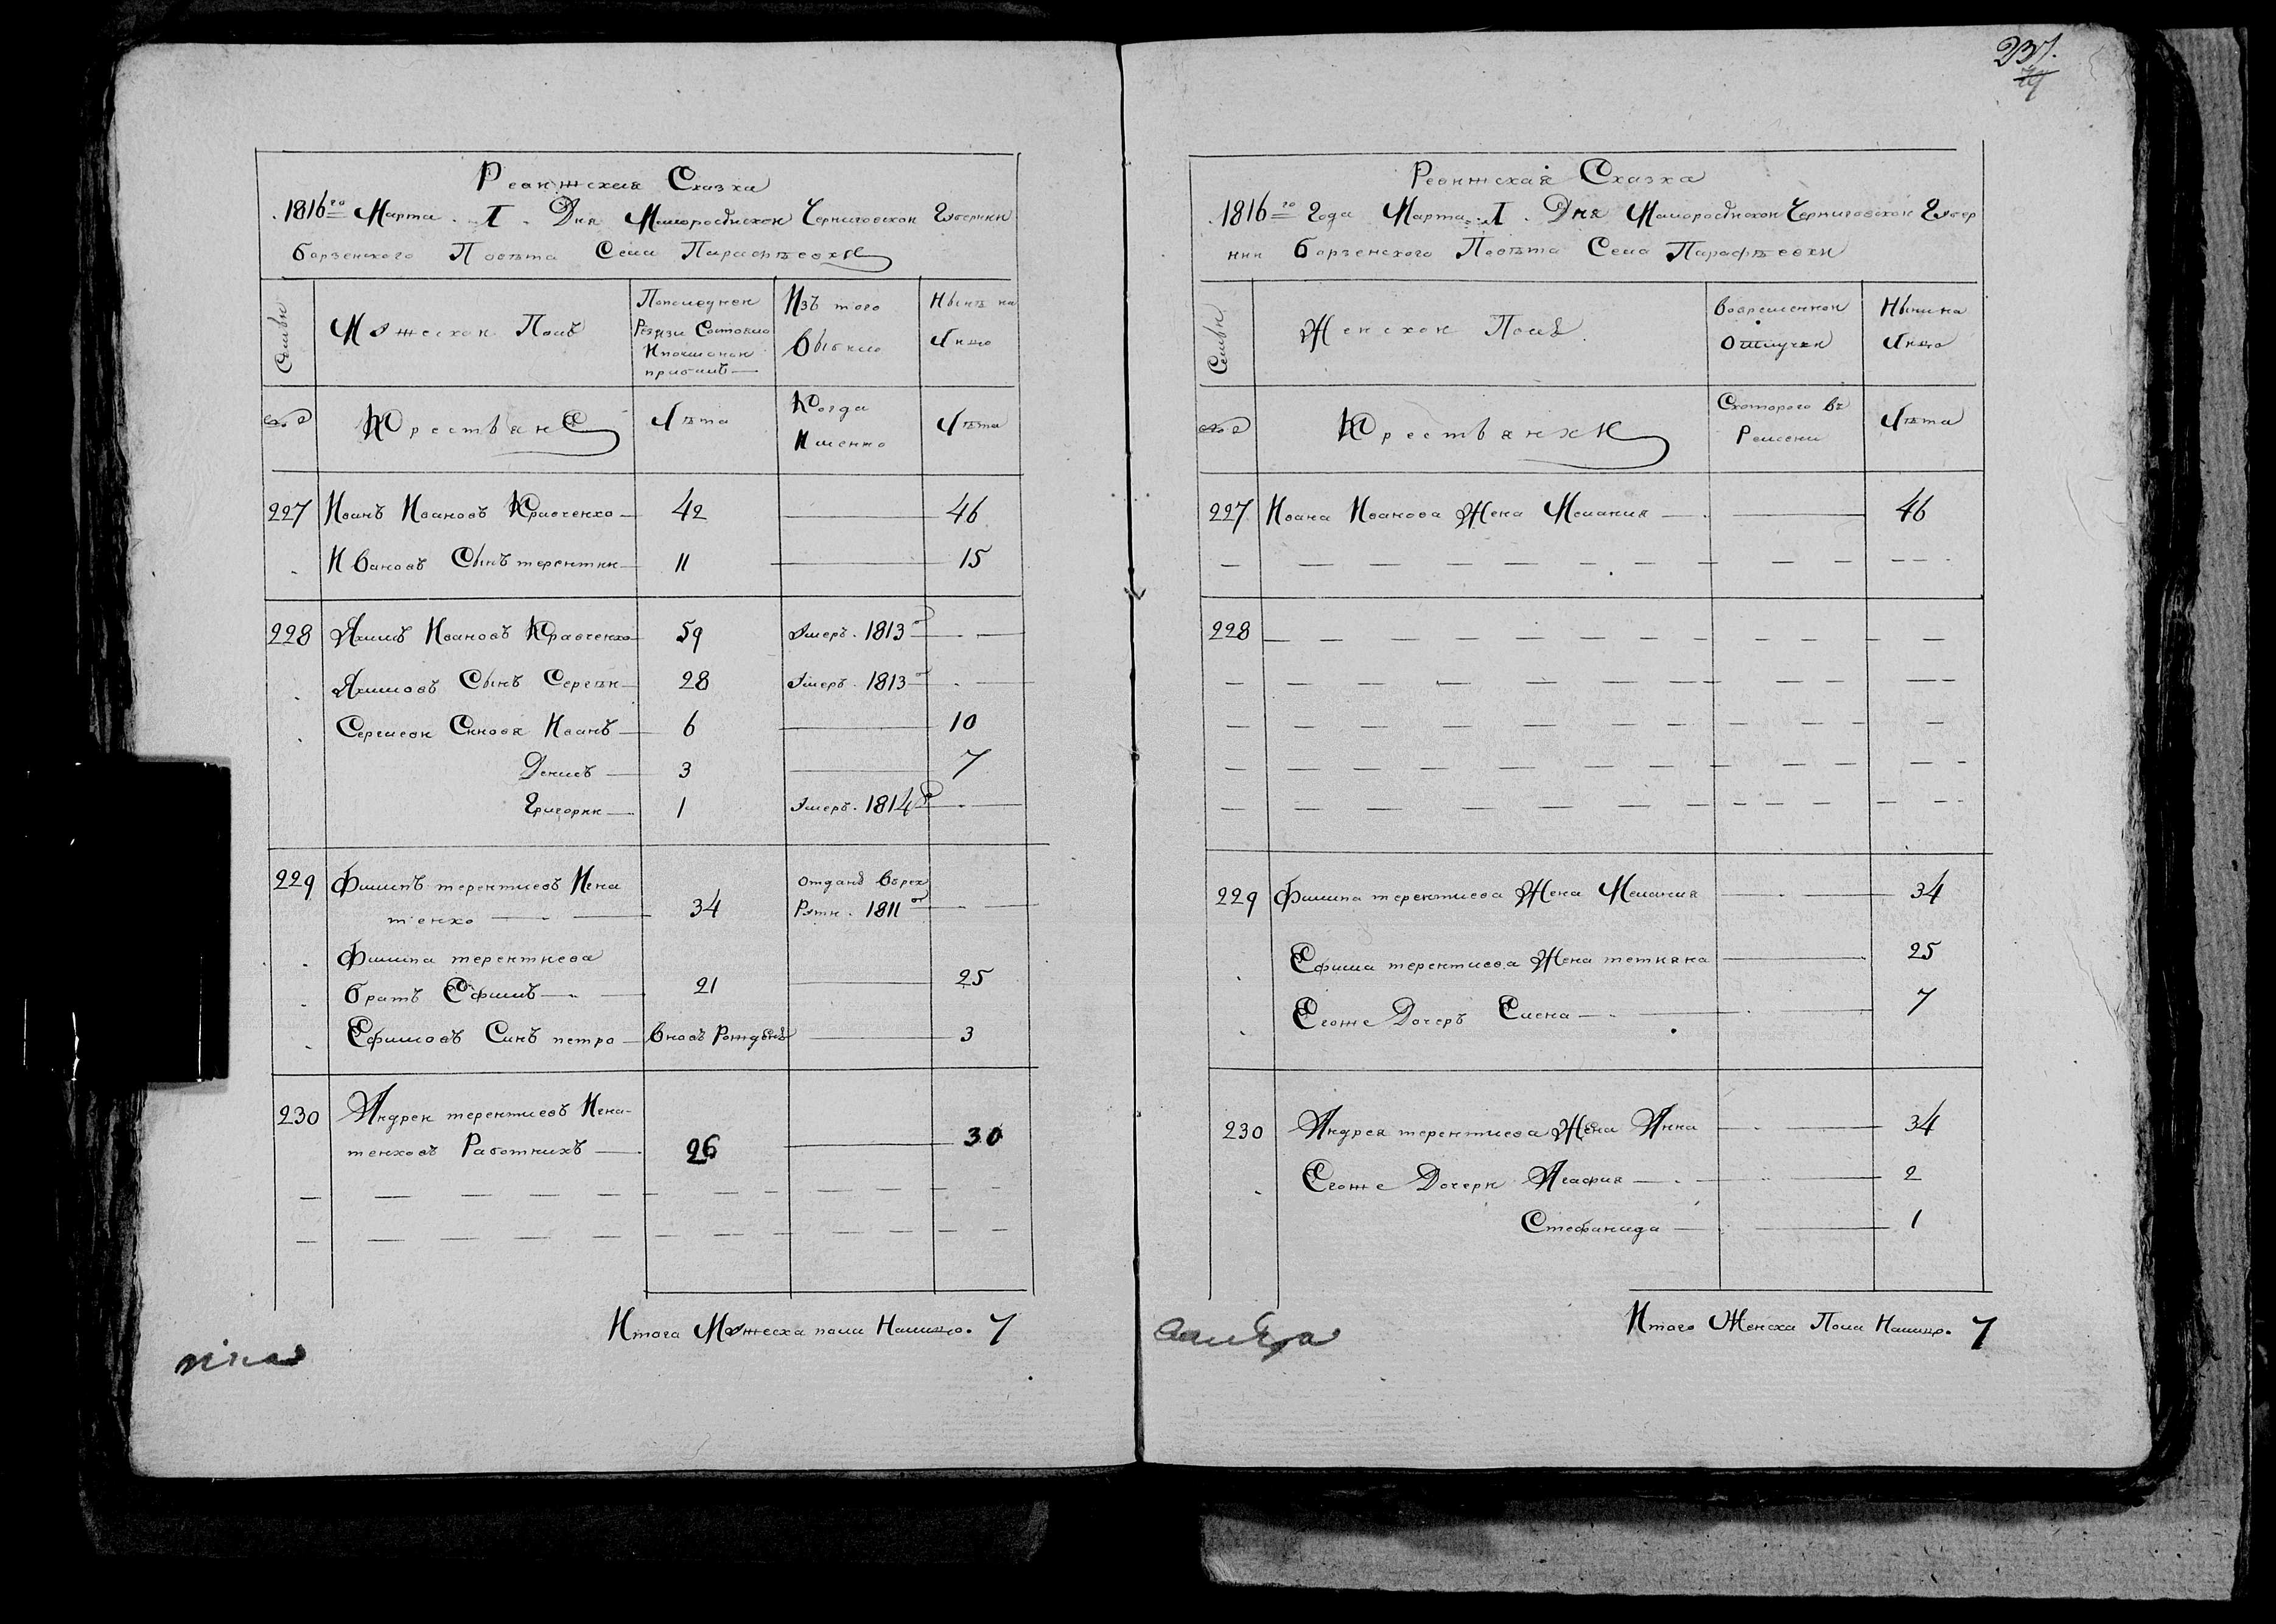 Ревижская Сказка
1816го Марта 1 Дня Малороссискои Черниговскои Губернии
Борзенского Повѣта Села Парафѣевки
Семьи
Мужескои Полъ
Попоследнеи
Ревизи Состояло
Ипослѣонои
прибыло
Изъ того
Выбыло
Нынѣ на
лицо
№
Крестьяне
Лѣта
Когда
Именно
Лѣта
227 Иванъ Ивановъ Кравченко 42 46
Ивановъ Сынъ терентии 11 15
228 Якимъ Ивановъ Кравченко 59 Умеръ. 1813
Якимовъ Сынъ Сергѣи 28 Умеръ. 1813
Сергиеви Синовя Иванъ 6 10
Денисъ 3 7
Григории 1 Умеръ. 1814
229 Филипъ терентиевъ Игна
тенко 34 Отданъ Врек
Рути. 1811
Филипа терентиева
братъ Ефимъ 21 25
Ефимовъ Синъ петро Вновь Рожденъ 3
230 Андреи терентиевъ Игна-
тенковъ Работникъ 26 30
Итого Мужеска пола Налицо. 7
237.
Ревижская Сказка
1816го Года Марта 1 Дня Малороссискои Черниговскои Губер
нии Борзенского Повѣта Села Парафѣевки
Семьи
Женскои Полъ
Вовременнои
Отлучки
Нынина
лицо
№
Крестьянки
Скоторого Вѣ
Ремени
Лѣта
227 Ивана Иванова Жена Мелания 46
228
229 Филипа терентиева Жена Мелания 34
Ефима терентиева Жена тетияна 25
Егоже Дочеръ Елена 7
230 Андрея терентиева Жена Анна 34
Егоже Дочери Агафия 2
Стефанида 1
Итого Женска Пола Налицо. 7